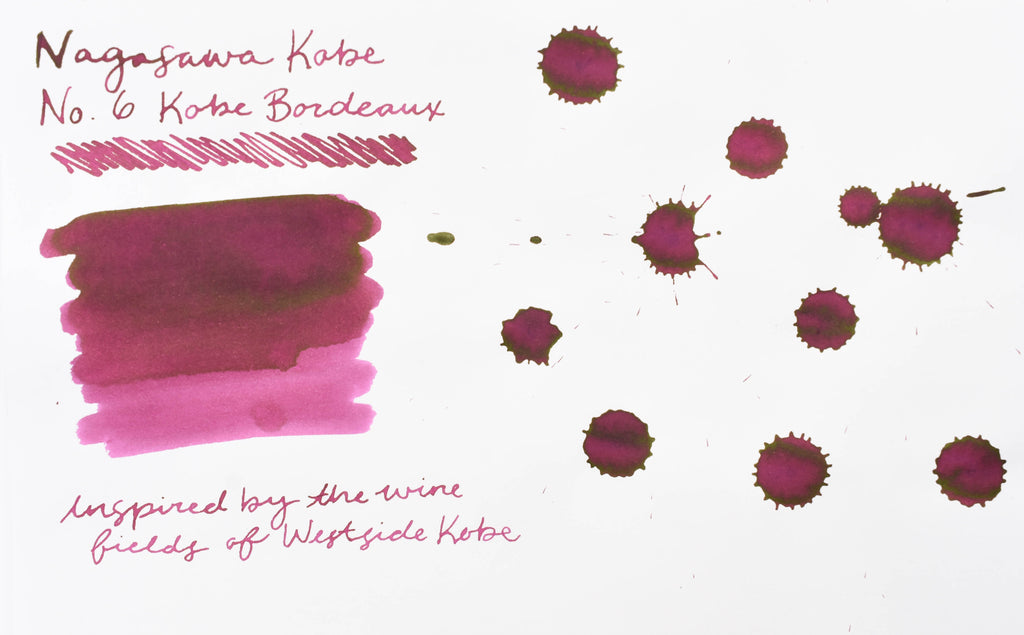 Nagasawa Kobe
No. 6 Kobe Bordeaux
inspired by the wine
fields of Westside Kobe